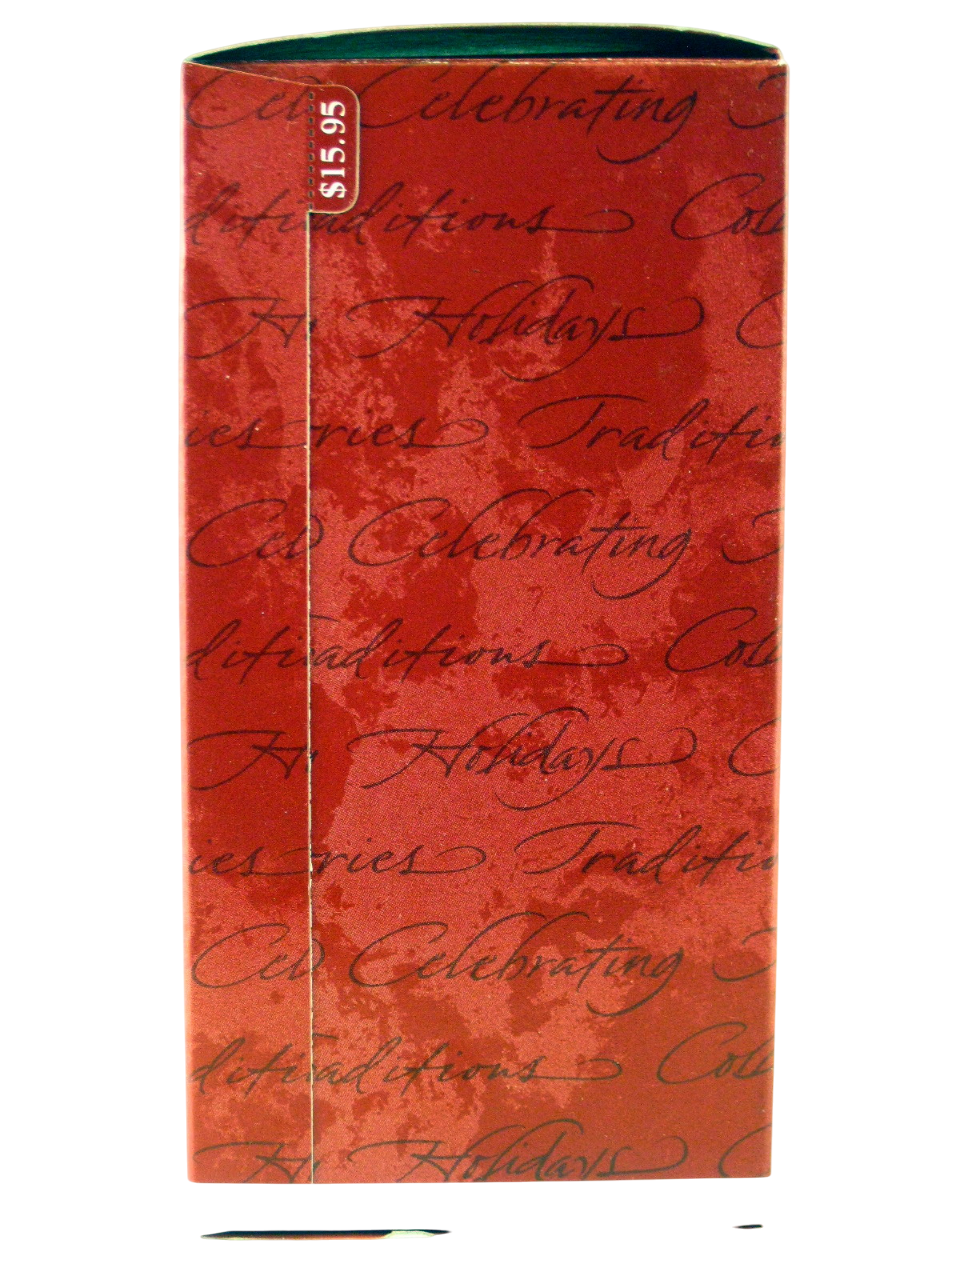 Cel Celebrating
$15.95
diti aditions Coll
Ho Holidays C
ies ries Traditio
Cel Celebrating T
diti aditions Coll
Ho Holidays C
ies ries Traditio
Cel Celebrating T
diti aditions Coll
Ho Holidays C